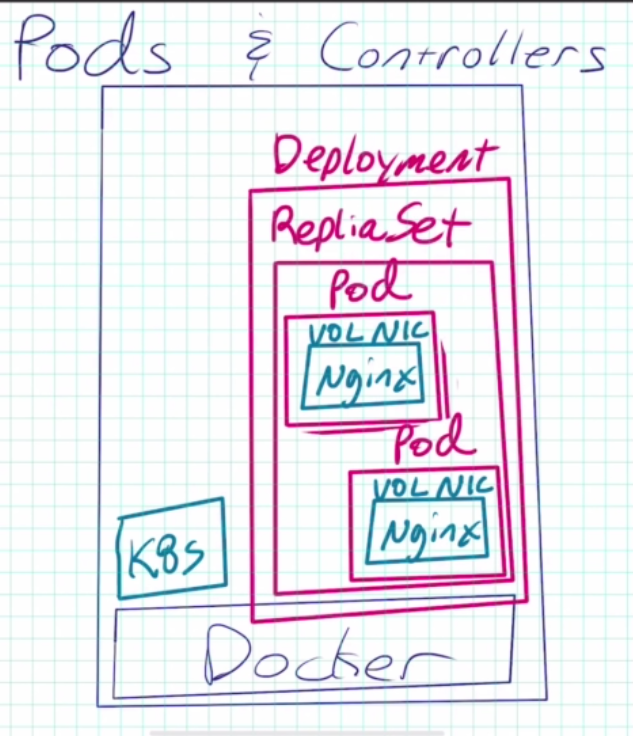 Pods & Controllers
Deployment
RepliaSet
Pod
VOL NIC
Nginx
Pod
VOL NIC
Nginx
K8s
Docker